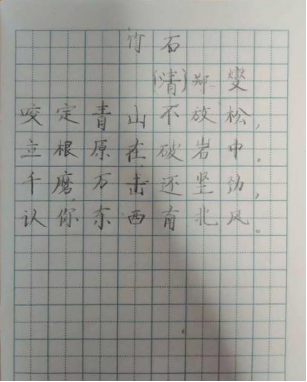 竹石
(清)郑燮
咬定青山不放松，
立根原在破岩中。
千磨万击还坚劲，
认你东西南北风。